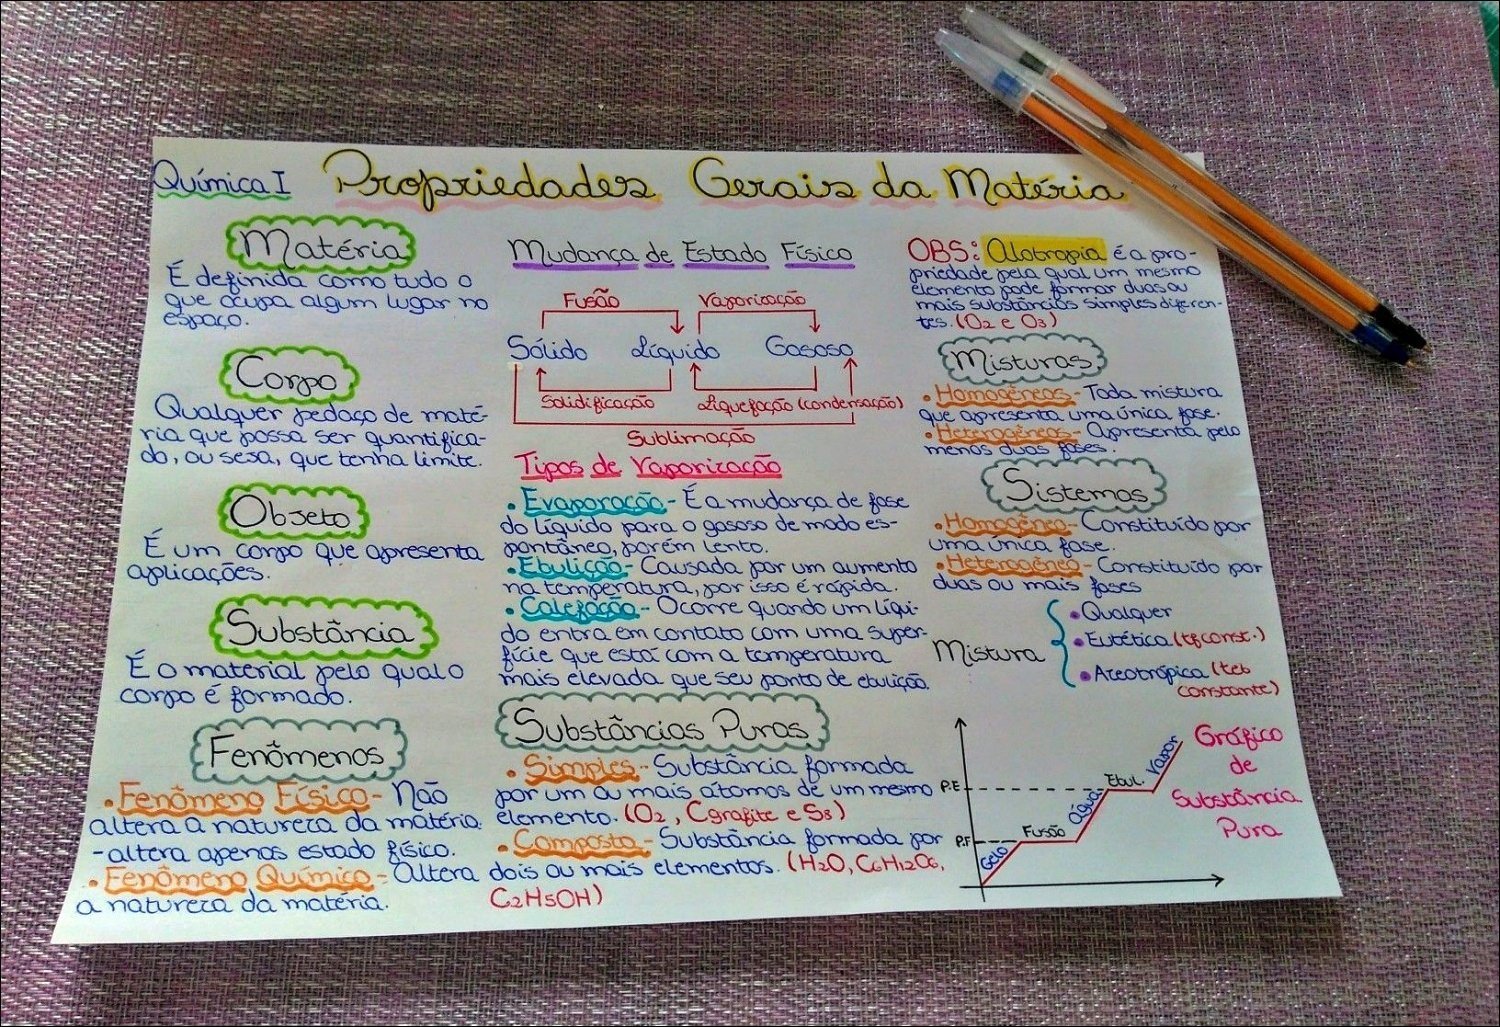 Química I Propriedades Gerais da Matéria
Matéria
É definida como tudo o
que ocupa algum lugar no
espaço.
Corpo
Qualquer pedaço de maté-
ria que possa ser quantifica-
do, ou seja, que tenha limite.
Objeto
É um corpo que apresenta
aplicações.
Substância
É o material pelo qual o
corpo é formado.
Fenômenos
• Fenômeno Físico - Não
altera a natureza da matéria.
- altera apenas estado físico.
• Fenômeno Químico - Altera
a natureza da matéria.
Mudança de Estado Físico
Fusão Vaporização
Sólido Líquido Gasoso
Solidificação Liquefação (condensação)
Sublimação
Tipos de Vaporização
• Evaporação - É a mudança de fase
do líquido para o gasoso de modo es-
pontâneo, porém lento.
• Ebulição - Causada por um aumento
na temperatura, por isso é rápida.
• Calefação - Ocorre quando um líqui-
do entra em contato com uma super-
fície que está com a temperatura
mais elevada que seu ponto de ebulição.
Substâncias Puras
• Simples - Substância formada
por um ou mais átomos de um mesmo
elemento. (O2, Cgrafite e S8)
• Composta - Substância formada por
dois ou mais elementos. (H2O, C6H12O6,
C2H5OH)
OBS: Alotropia é a pro-
priedade pela qual um mesmo
elemento pode formar duas ou
mais substâncias simples diferen-
tes. (O2 e O3)
Misturas
• Homogêneas - Toda mistura
que apresenta uma única fase.
• Heterogêneas - Apresenta pelo
menos duas fases.
Sistemas
• Homogêneo - Constituído por
uma única fase.
• Heterogêneo - Constituído por
duas ou mais fases
Mistura
• Qualquer
• Eutética (tf const.)
• Azeotrópica (teb
constante)
Gráfico
de
Substância
Pura
P.E
P.F
Gelo
Fusão
Água
Ebul.
Vapor